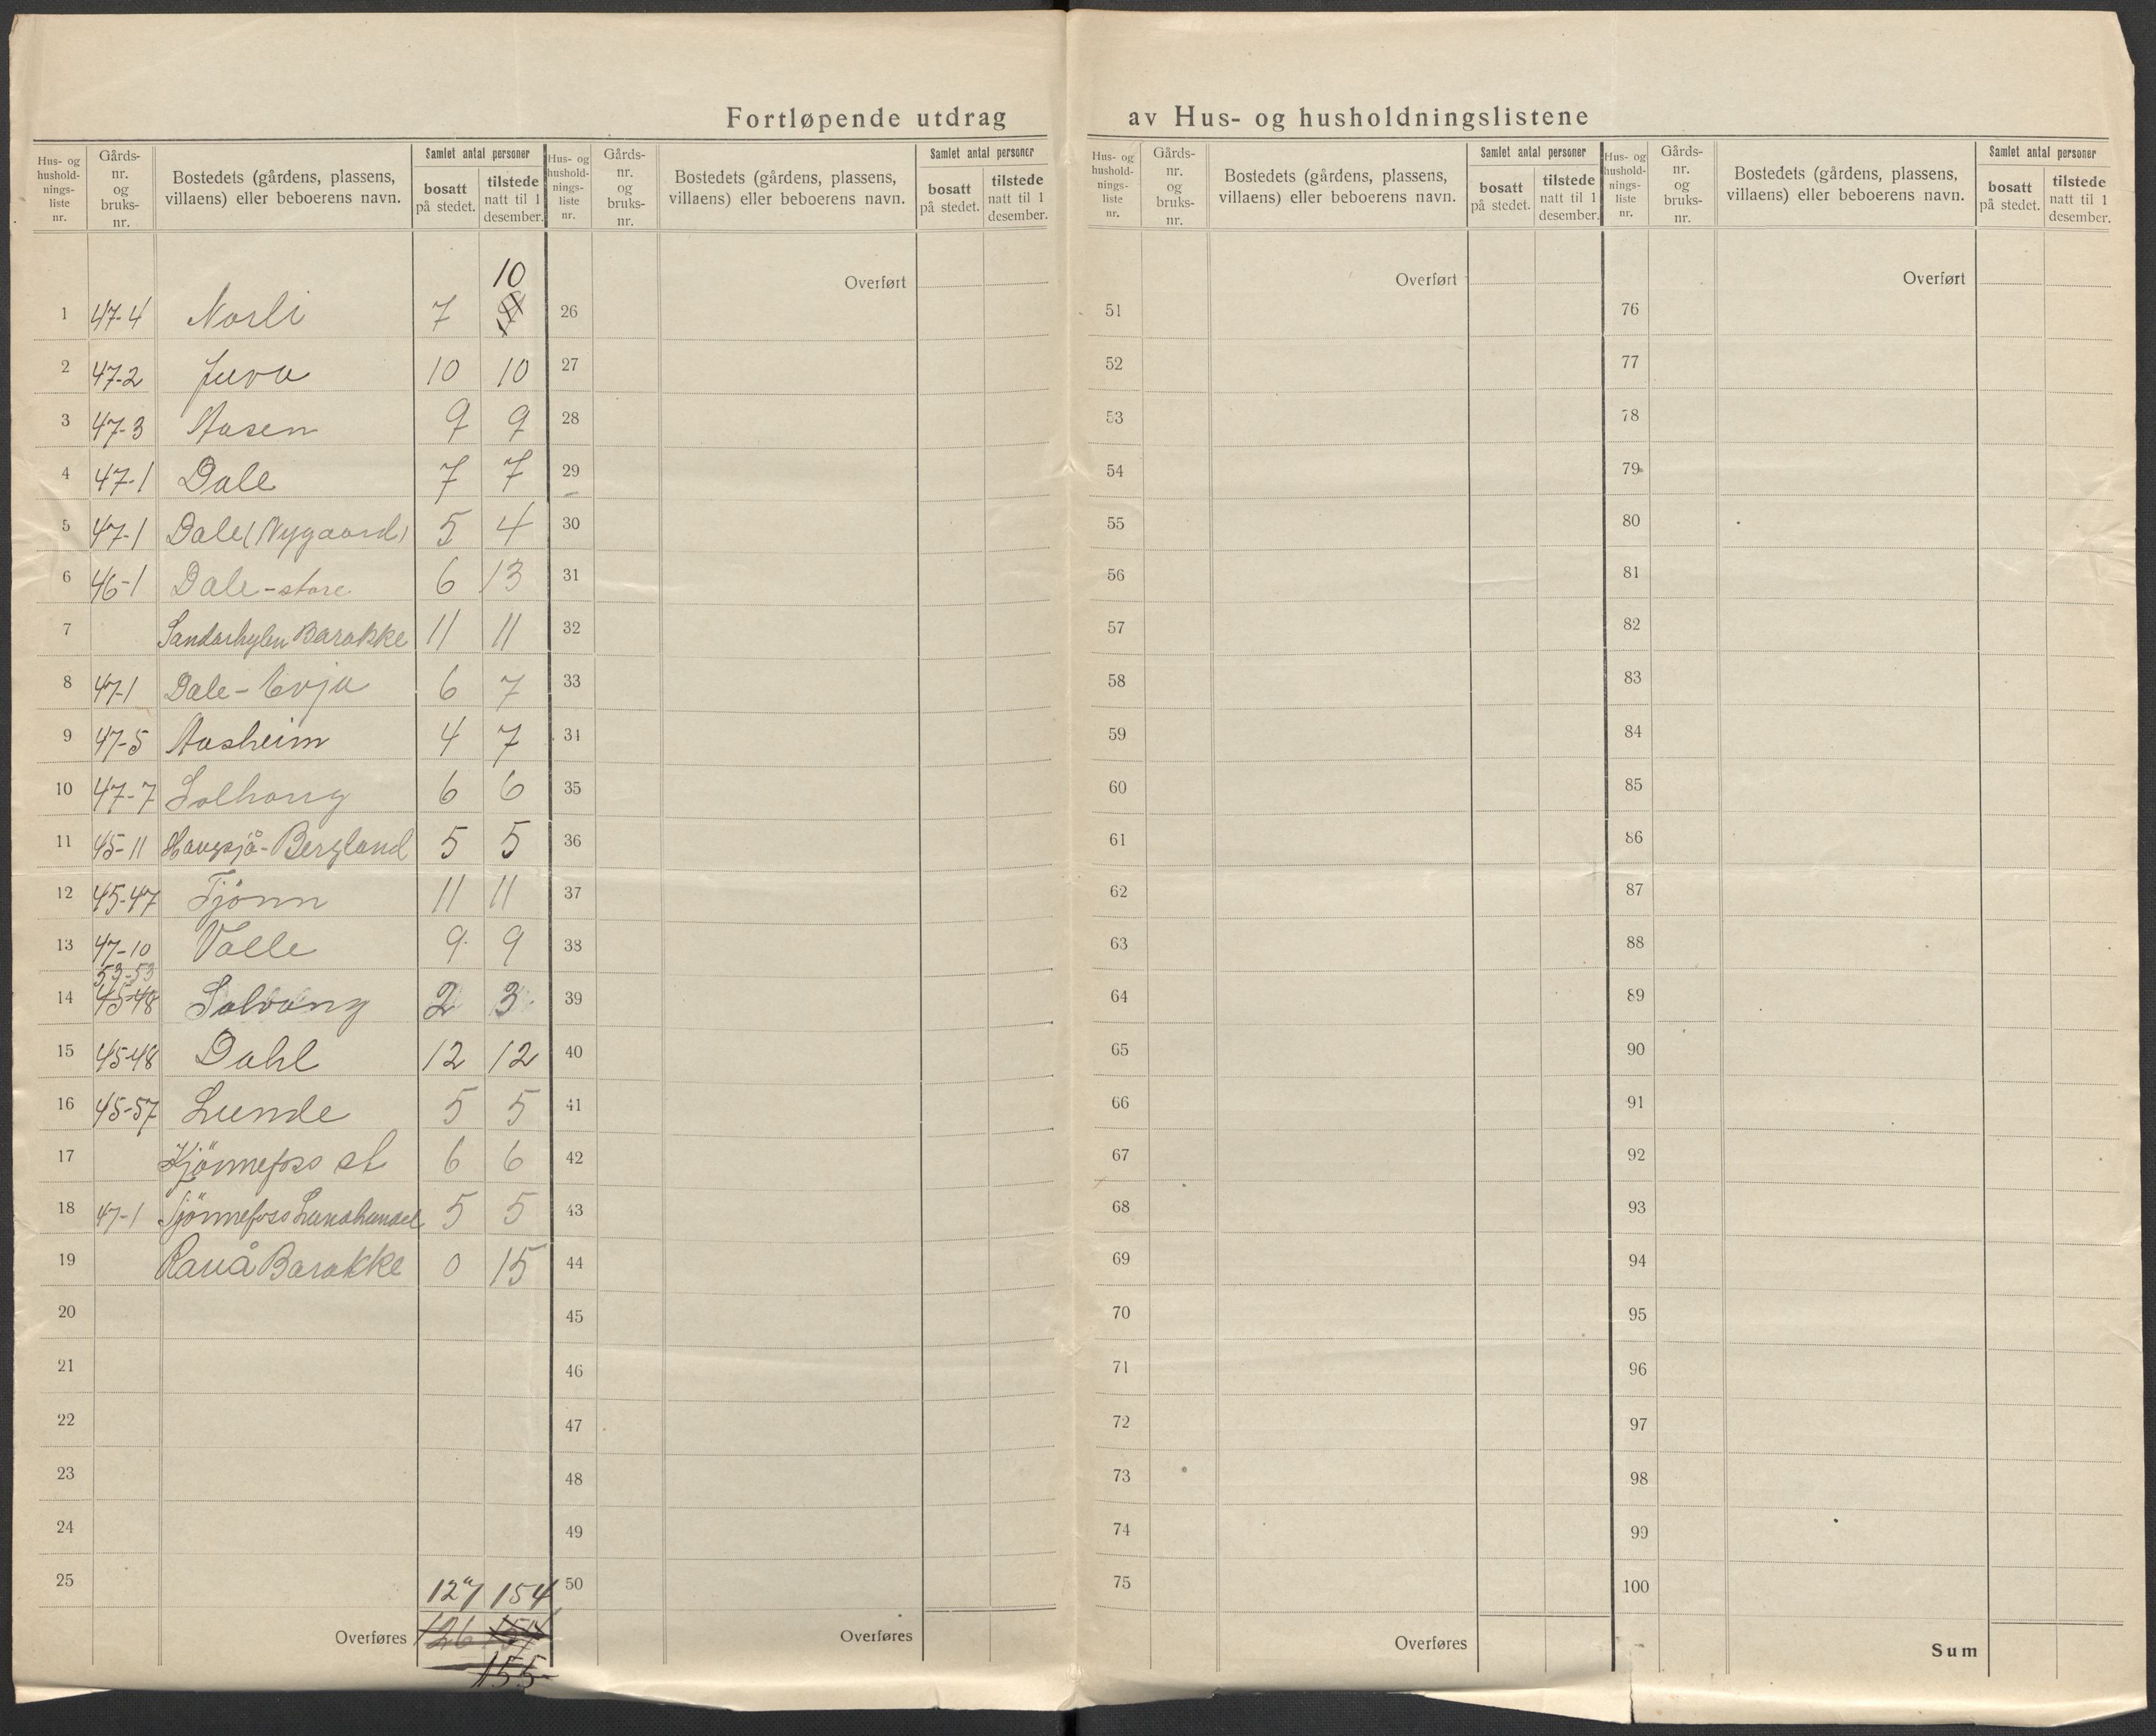 Fortløpende utdrag av Hus- og husholdningslistene
Hus- og hushold- nings- liste nr. Gårds- nr. og bruks- nr. Bostedets (gårdens, plassens, villaens) eller beboerens navn. Samlet antal personer bosatt på stedet. tilstede natt til 1 desember.
Hus- og hushold- nings- liste nr. Gårds- nr. og bruks- nr. Bostedets (gårdens, plassens, villaens) eller beboerens navn. Samlet antal personer bosatt på stedet. tilstede natt til 1 desember.
Hus- og hushold- nings- liste nr. Gårds- nr. og bruks- nr. Bostedets (gårdens, plassens, villaens) eller beboerens navn. Samlet antal personer bosatt på stedet. tilstede natt til 1 desember.
Hus- og hushold- nings- liste nr. Gårds- nr. og bruks- nr. Bostedets (gårdens, plassens, villaens) eller beboerens navn. Samlet antal personer bosatt på stedet. tilstede natt til 1 desember.
10
1 47-4 Norli 7
2 47-2 Juva 10 10
3 47-3 Aasen 9 9
4 47-1 Dale 7 7
5 47-1 Dale (Nygaard) 5 4
6 46-1 Dale-store 6 13
7 Barakke 11 11
8 47-1 Dale-Evju 6 7
9 47-5 Aasheim 4 7
10 47-7 Solhaug 6 6
11 45-11 Haugsjå-Bergland 5 5
12 45-47 Tjönn 11 11
13 47-10 Valle 9 9
53-53
14 45-48 Solvang 2 3
15 45-48 Dahl 12 12
16 45-57 Lunde 5 5
17 Kjönnefoss st 6 6
18 47-1 Tjönnefoss Landhandel 5 5
19 Rauå Barakke 0 15
20
21
22
23
24
25
127 154
Overføres 126
155
Overført
26
27
28
29
30
31
32
33
34
35
36
37
38
39
40
41
42
43
44
45
46
47
48
49
50
Overføres
Overført
51
52
53
54
55
56
57
58
59
60
61
62
63
64
65
66
67
68
69
70
71
72
73
74
75
Overføres
Overført
76
77
78
79
80
81
82
83
84
85
86
87
88
89
90
91
92
93
94
95
96
97
98
99
100
Sum